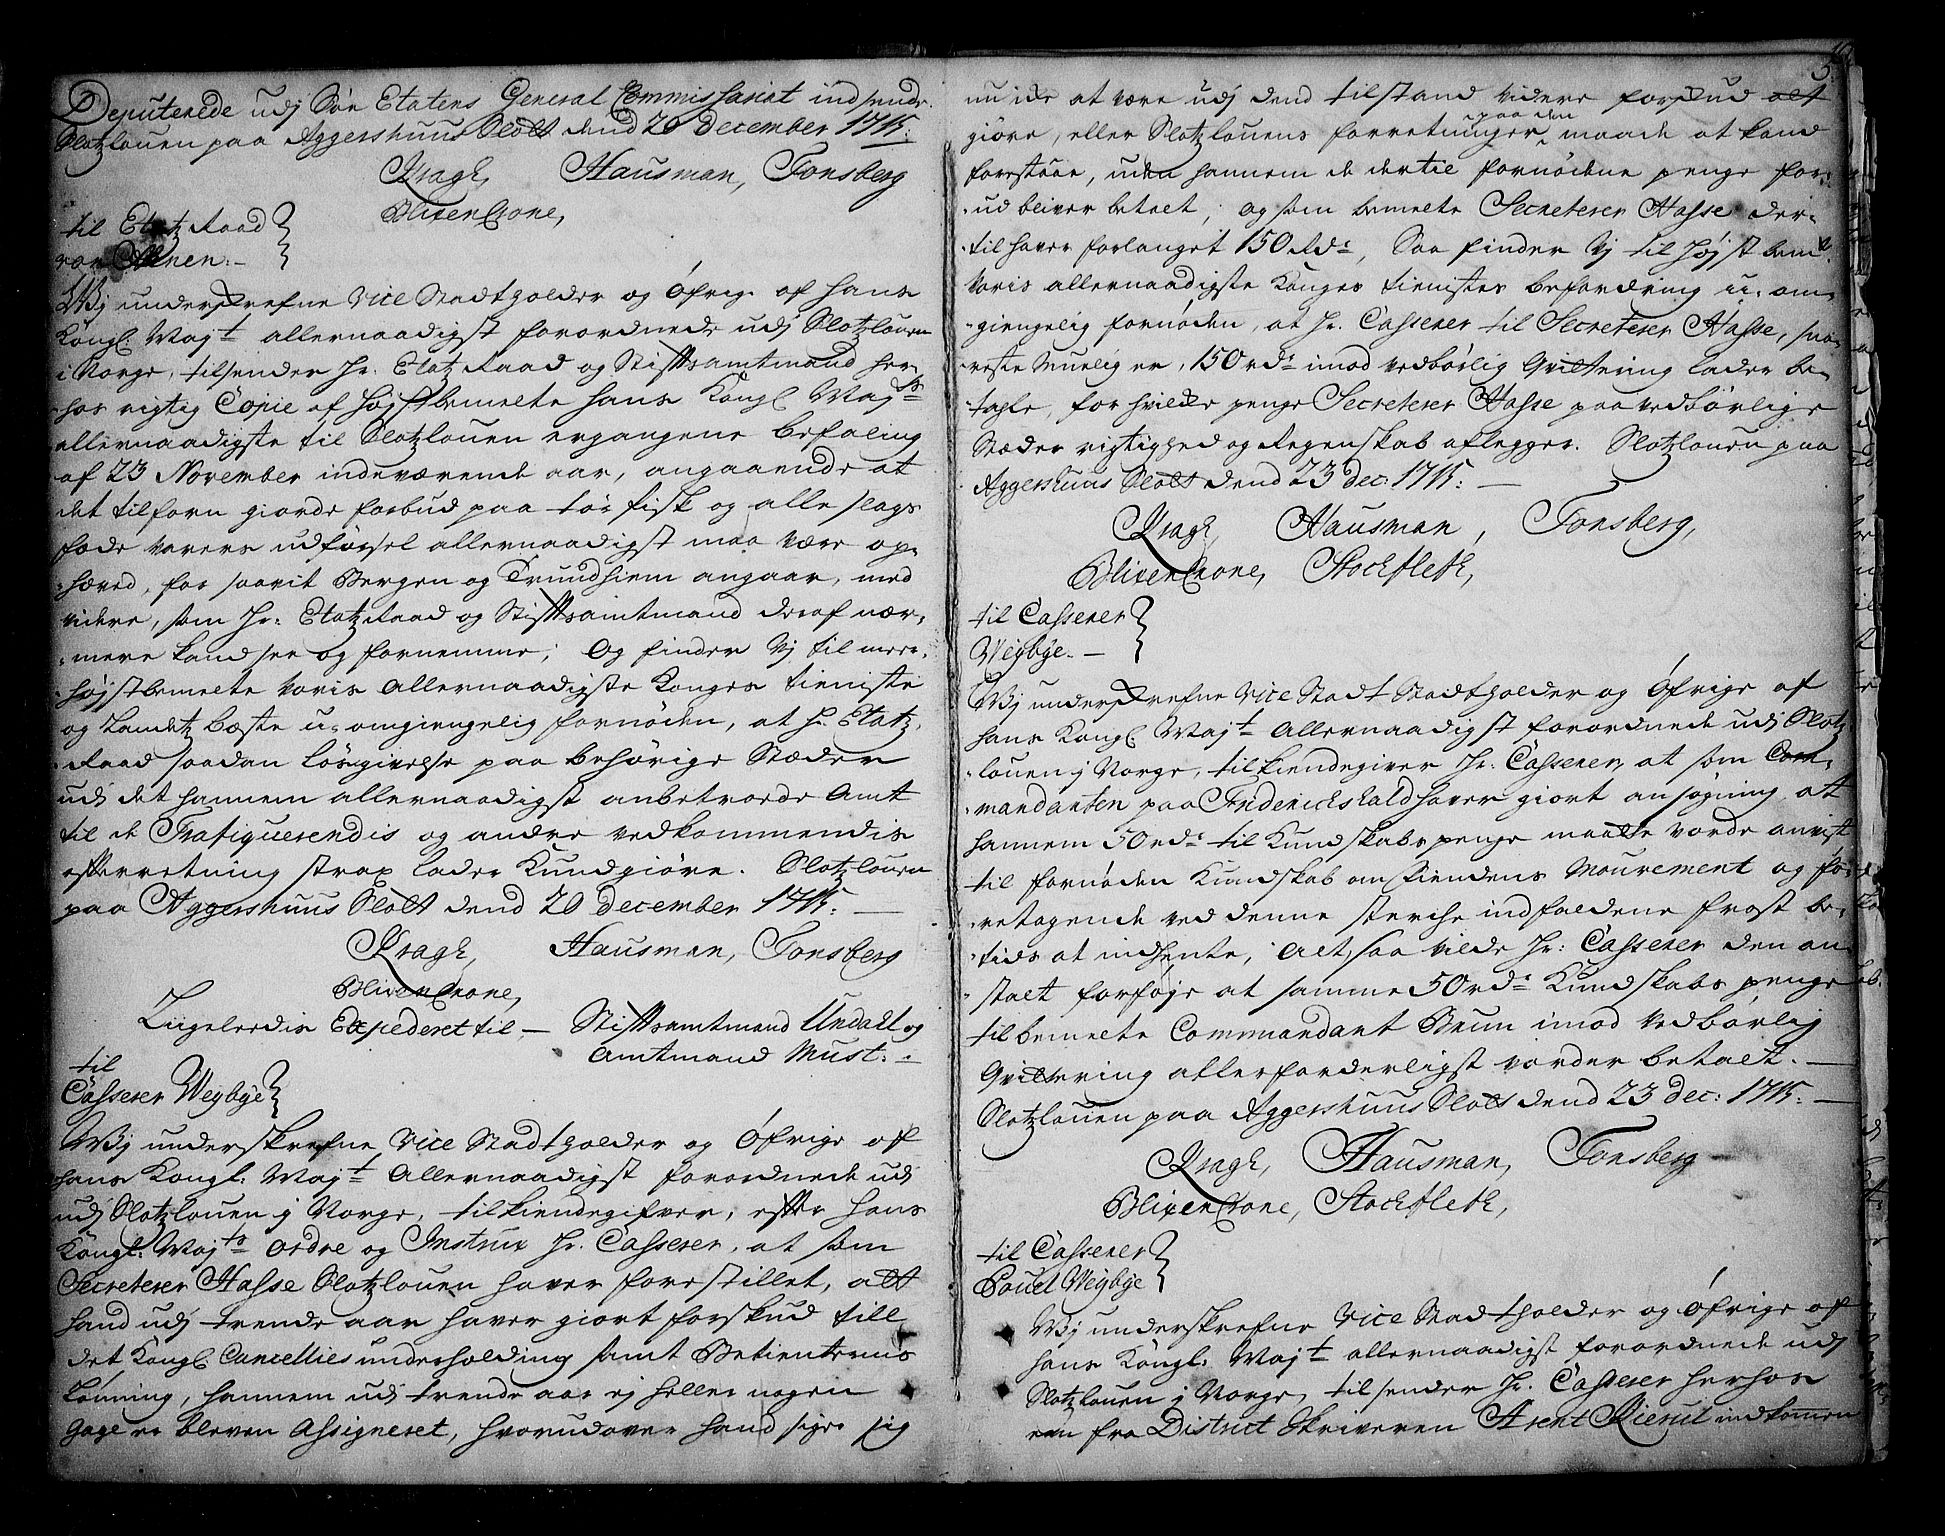 Deputerede udj Söe Etatens General Commissariat indsende.
Slotzlouen paa Aggershuus Slott dend 20 December 1715:
Kragh, Hausman, Tonsberg
Blixencrone,
til Etatz Raad
von Ottenen:
Wj underskrefne Vice Stadtholder og Öfrige af hans
Kongl: Mayt allernaadigst forordnede udj Slotzlouen
i Norge, tilsender Hr. Etatz Raad og Stifftsamtmand her-
hos rigtig Copie af höjstbemelte hans Kongl Mayts
allernaadigste til Slotzlouen ergangene befaling
af 23 November indeværende aar, angaaende at
det tilforn giorde forbud paa tör fisk og alle slags
föde varers udförsel allernaadigst maa være op-
hæved, for saavit Bergen og Trundhiem angaar, med
videre, som Hr: Etatz Raad og Stifftsamtmand deraf nær-
mere kand see og fornemme; Og finder Vj til mere
höjstbemelte voris Allernaadigste Konges tieniste
og Landetz bæste u-omgiengelig fornöden, at Hr. Etatz
Raad saadan lösgivelse paa behörige Stæder
udi det hannem allernaadigst anbetroede Amt
til de Trafiquerendis og andre vedkommendis
effterretning strax lader Kundgiöre. Slotzlouen
paa Aggershuus Slott dend 20 december 1715:
Kragh, Hausman, Tonsberg
Blixencrone,
Ligeledis Expederet til Stifftsamtmand Undahl og
Amtmand Must:
til
Casserer Weybye
Wj underskrefne Vice Stadtholder og Öfrige af
hans Kongl: Mayt Allernaadigst forordnede udi
udj Slotzlouen j Norge, tilkiendegifver, effter hans
Kongl: Mayts Ordre og Instrux Hr. Casserer, at som
Secreterer Hasse Slotzlouen haver forestillet, att
hand udj trende aar haver giort forskud till
det Kongl Cancellies underholding samt Betienternis
Lönning, hannem udi trende aar ej heller nogen
Gage er bleven Assigneret, hvorudover hand siger sig
nu icke at være udj dend tilstand videre forskud alt
giöre, eller Slotzlouens forretninger paa den maade at kand
forestaae, uden hannem de dertil fornödene penge for-
ud bliver betalt, og som bemelte Secreterer Hasse der-
til haver forlanget 150 Rdr, Saa finder Vj til höjst bemte
Voris allernaadigste Konges tienistes befordring u-om-
giengelig fornöden, at Hr. Casserer til Secreterer Hasse, sna-
reste Muelig er, 150 rdr imod vedbörlig Qvittering lader be-
tahle, for hvilcke penge Secreterer Hasse paa vedbörlige
Stæder rigtighed og Regenskab aflegger. Slotzlouen paa
Aggershuus Slott dend 23 dec: 1715:
Kragh, Hausman, Tonsberg,
Blixencrone, Stockfleth,
til Casserer
Weybye.
Wj underskrefne Vice Stadt Stadtholder og Öfrige af
hans Kongl Mayt Allernaadigst forordnede udj Slotz
louen j Norge, tilkiendegiver Hr. Casserer, at som Com-
mandanten paa Friderickshald haver giort ansögning at
hannem 50 rdr til Kundskabs penge maatte vorde anvist
til fornöden Kundskab om Fiendens Mouvement og fo-
retagende ved denne sterche indfaldene frost be-
tids at indhente, Alt saa vilde Hr: Casserer den an-
stalt forföje at samme 50 rdr Kundskabs penge
til bemelte Commandant Brun imod Vedbörlig
Qvittering allerforderligst vorder betalt.
Slotzlouen paa Aggershuus Slott dend 23 dec: 1715:
Kragh, Hausman, Tonsberg
Blixencrone, Stockfleth,
til Casserer
Pouel Weybye
Wj underskrefne Vice Stadtholder og Öfrige af
hans Kongl: Mayt allernaadigst forordnede udj
Slotzlouen j Norge, tilsender Hr. Casserer herhos
een fra District Skriveren Arent Kierul indkommen